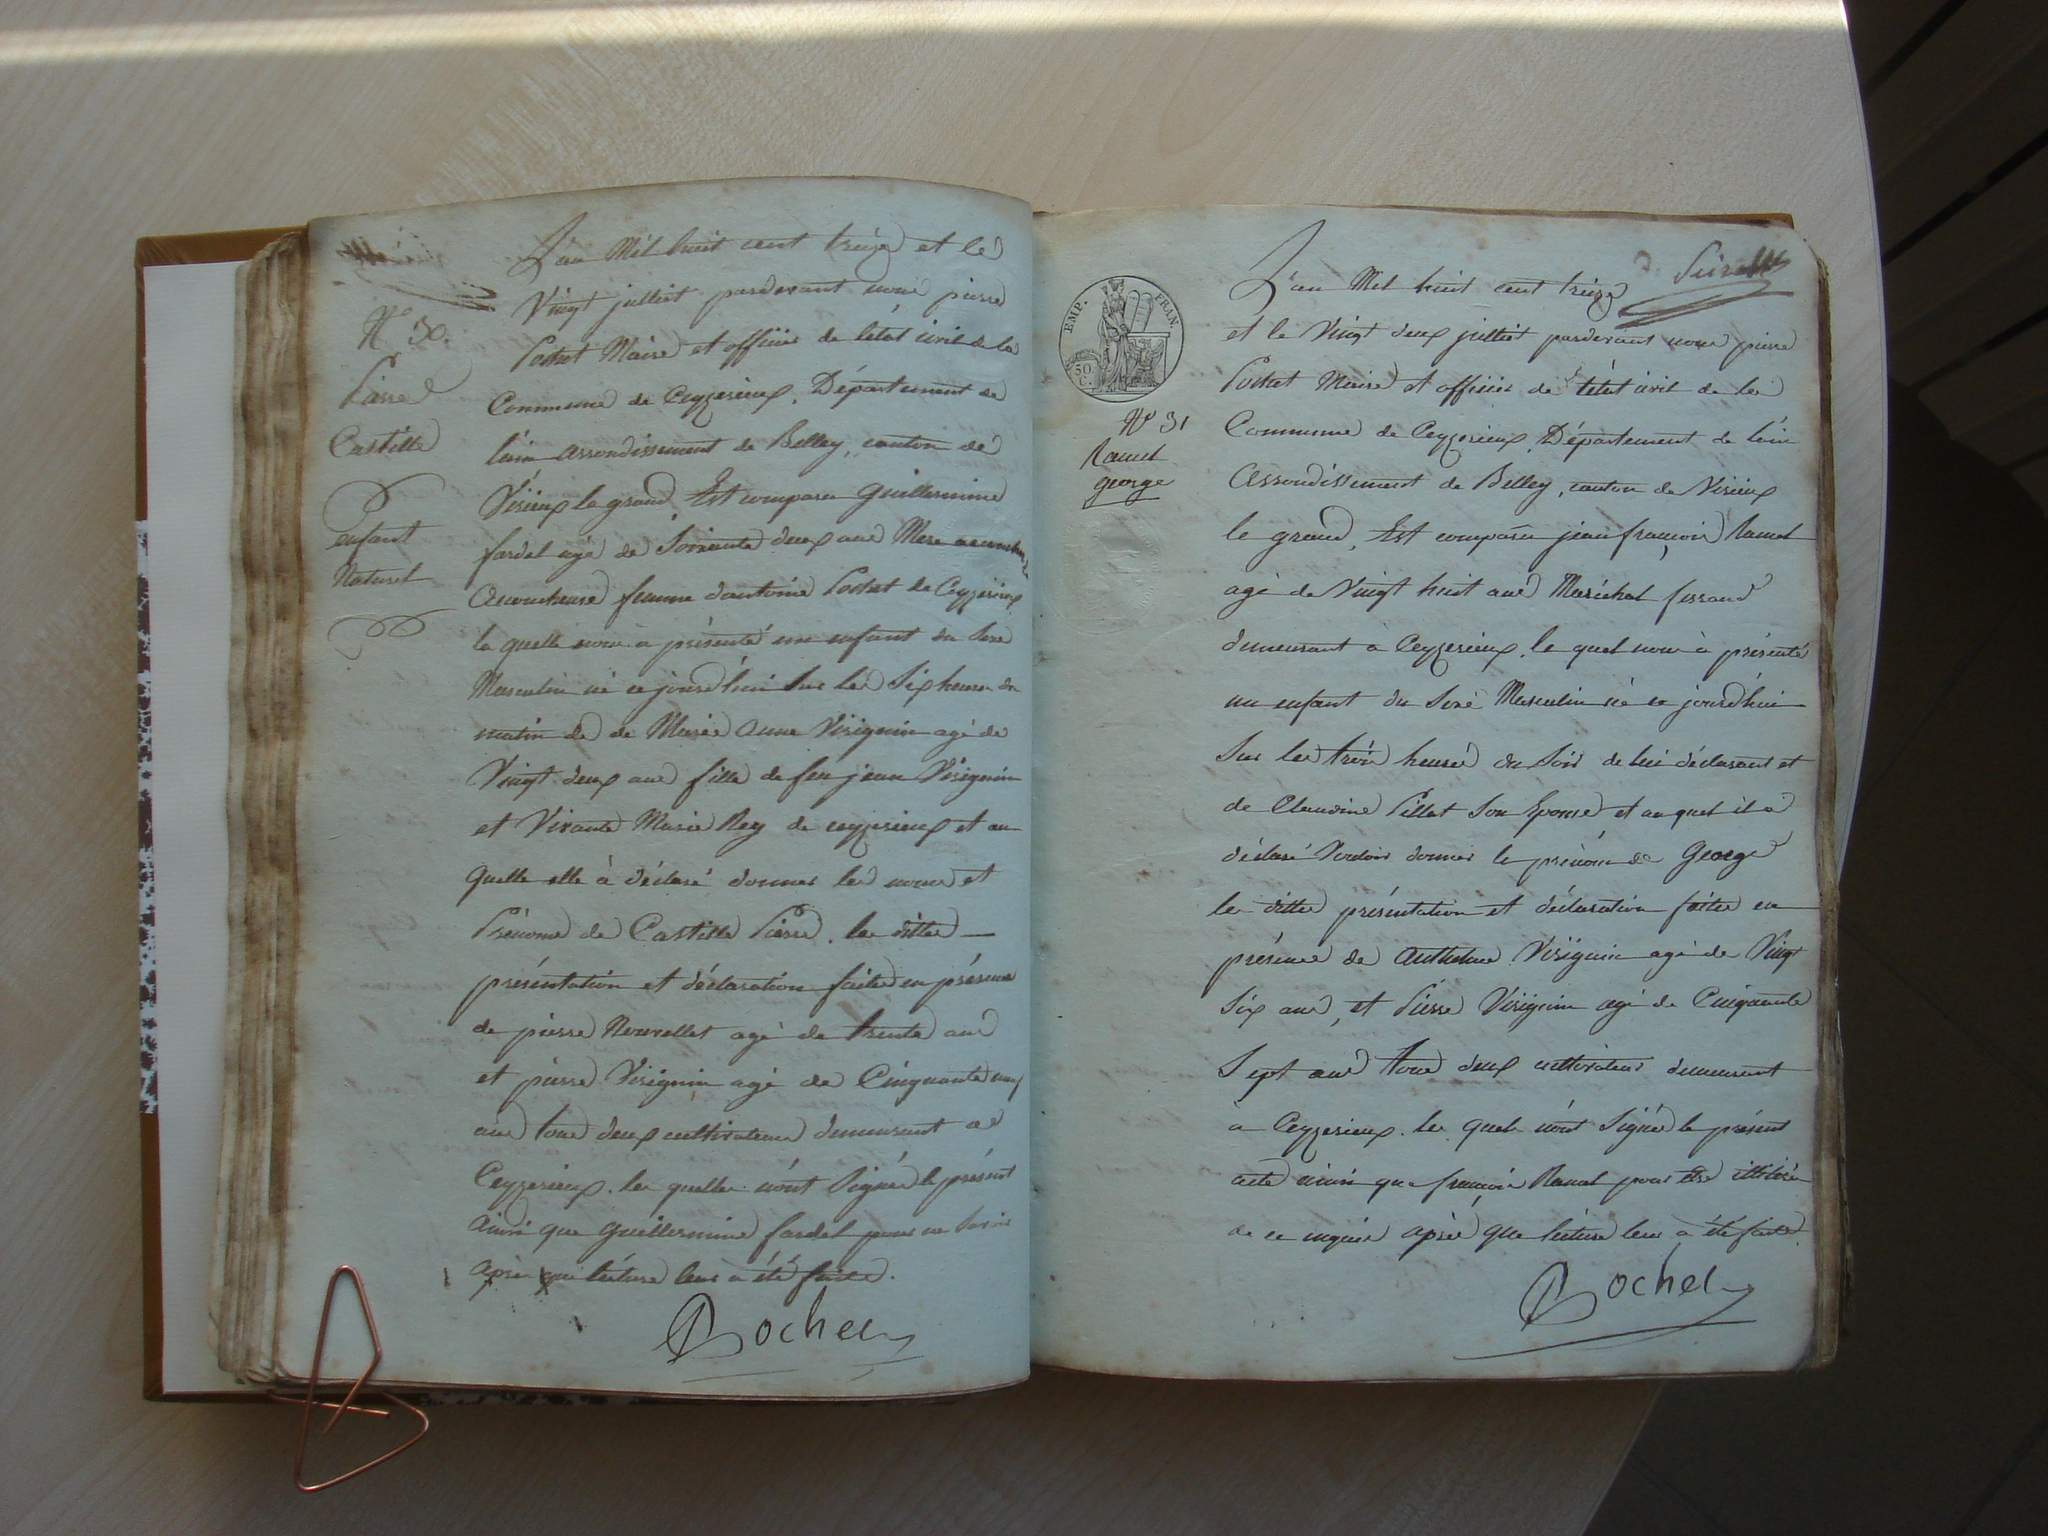 N° 30.
Pierre
Castille
enfant
Naturel
L'an Mil huit cent treize et le
Vingt julliet pardevant nous pierre
Pochet Maire et officier de l'état civil de la
Commune de Ceyzerieux, Département de
l'ain arrondissement de Belley, canton de
Virieux le grand, Est comparu Guillermine
fardel agé de Soixante deux ans Mere
accoucheuse femme d'antoine Pochet de Ceyzerieux
la quelle nous à présenté un enfant du Sexe
Masculin né ce jourd'hui Sur les Six heures du
matin de de Marie Anne Virignin agé de
Vingt deux ans fille de feu jean Virignin
et Vivante Marie Rey de ceyzerieux et au
quelle elle à déclaré donner les noms et
Prénoms de Castille Pierre. les dittes
présentation et déclaration faites en présence
de pierre Nouvellet agé de trente ans
et pierre Virignin agé de Cinquante neuf
ans tous deux cultivateurs demeurant a
Ceyzerieux. les quelles n'ont Signés le présent
Ainsi que guillermine fardel pour ne Savoir
après que lécture leur à été faite.
Pochet
EMP. FRAN.
50 C.
N° 31
Ramel
george
L'an Mil huit cent treize
et le Vingt deux julliet pardevant nous pierre
Pochet Maire et officier de l'état civil de la
Commune de Ceyzerieux, Département de l'ain
Arrondissement de Belley, canton de Virieux
le grand, Est comparu jean françois Ramel
agé de Vingt huit ans Maréchal ferrand
demeurant à Ceyzerieux. le quel nous à présenté
un enfant du Sexe Masculin né ce jourd'hui
Sur les trois heures du Soir de lui déclarant et
de Claudine Pillet Son Epouse et au quel il à
déclaré Vouloir donner le prénom de George
les dittes présentation et déclaration faites en
présence de Anthelme Virignin agé de Vingt
Six ans, et Pierre Virignin agé de Cinquante
Sept ans tous deux cultivateurs demeurant
à Ceyzerieux. les quels n'ont Signés le présent
acte ainsi que françois Ramel pour être illitérés
de ce enquis après que lécture leur à été faite.
Pochet